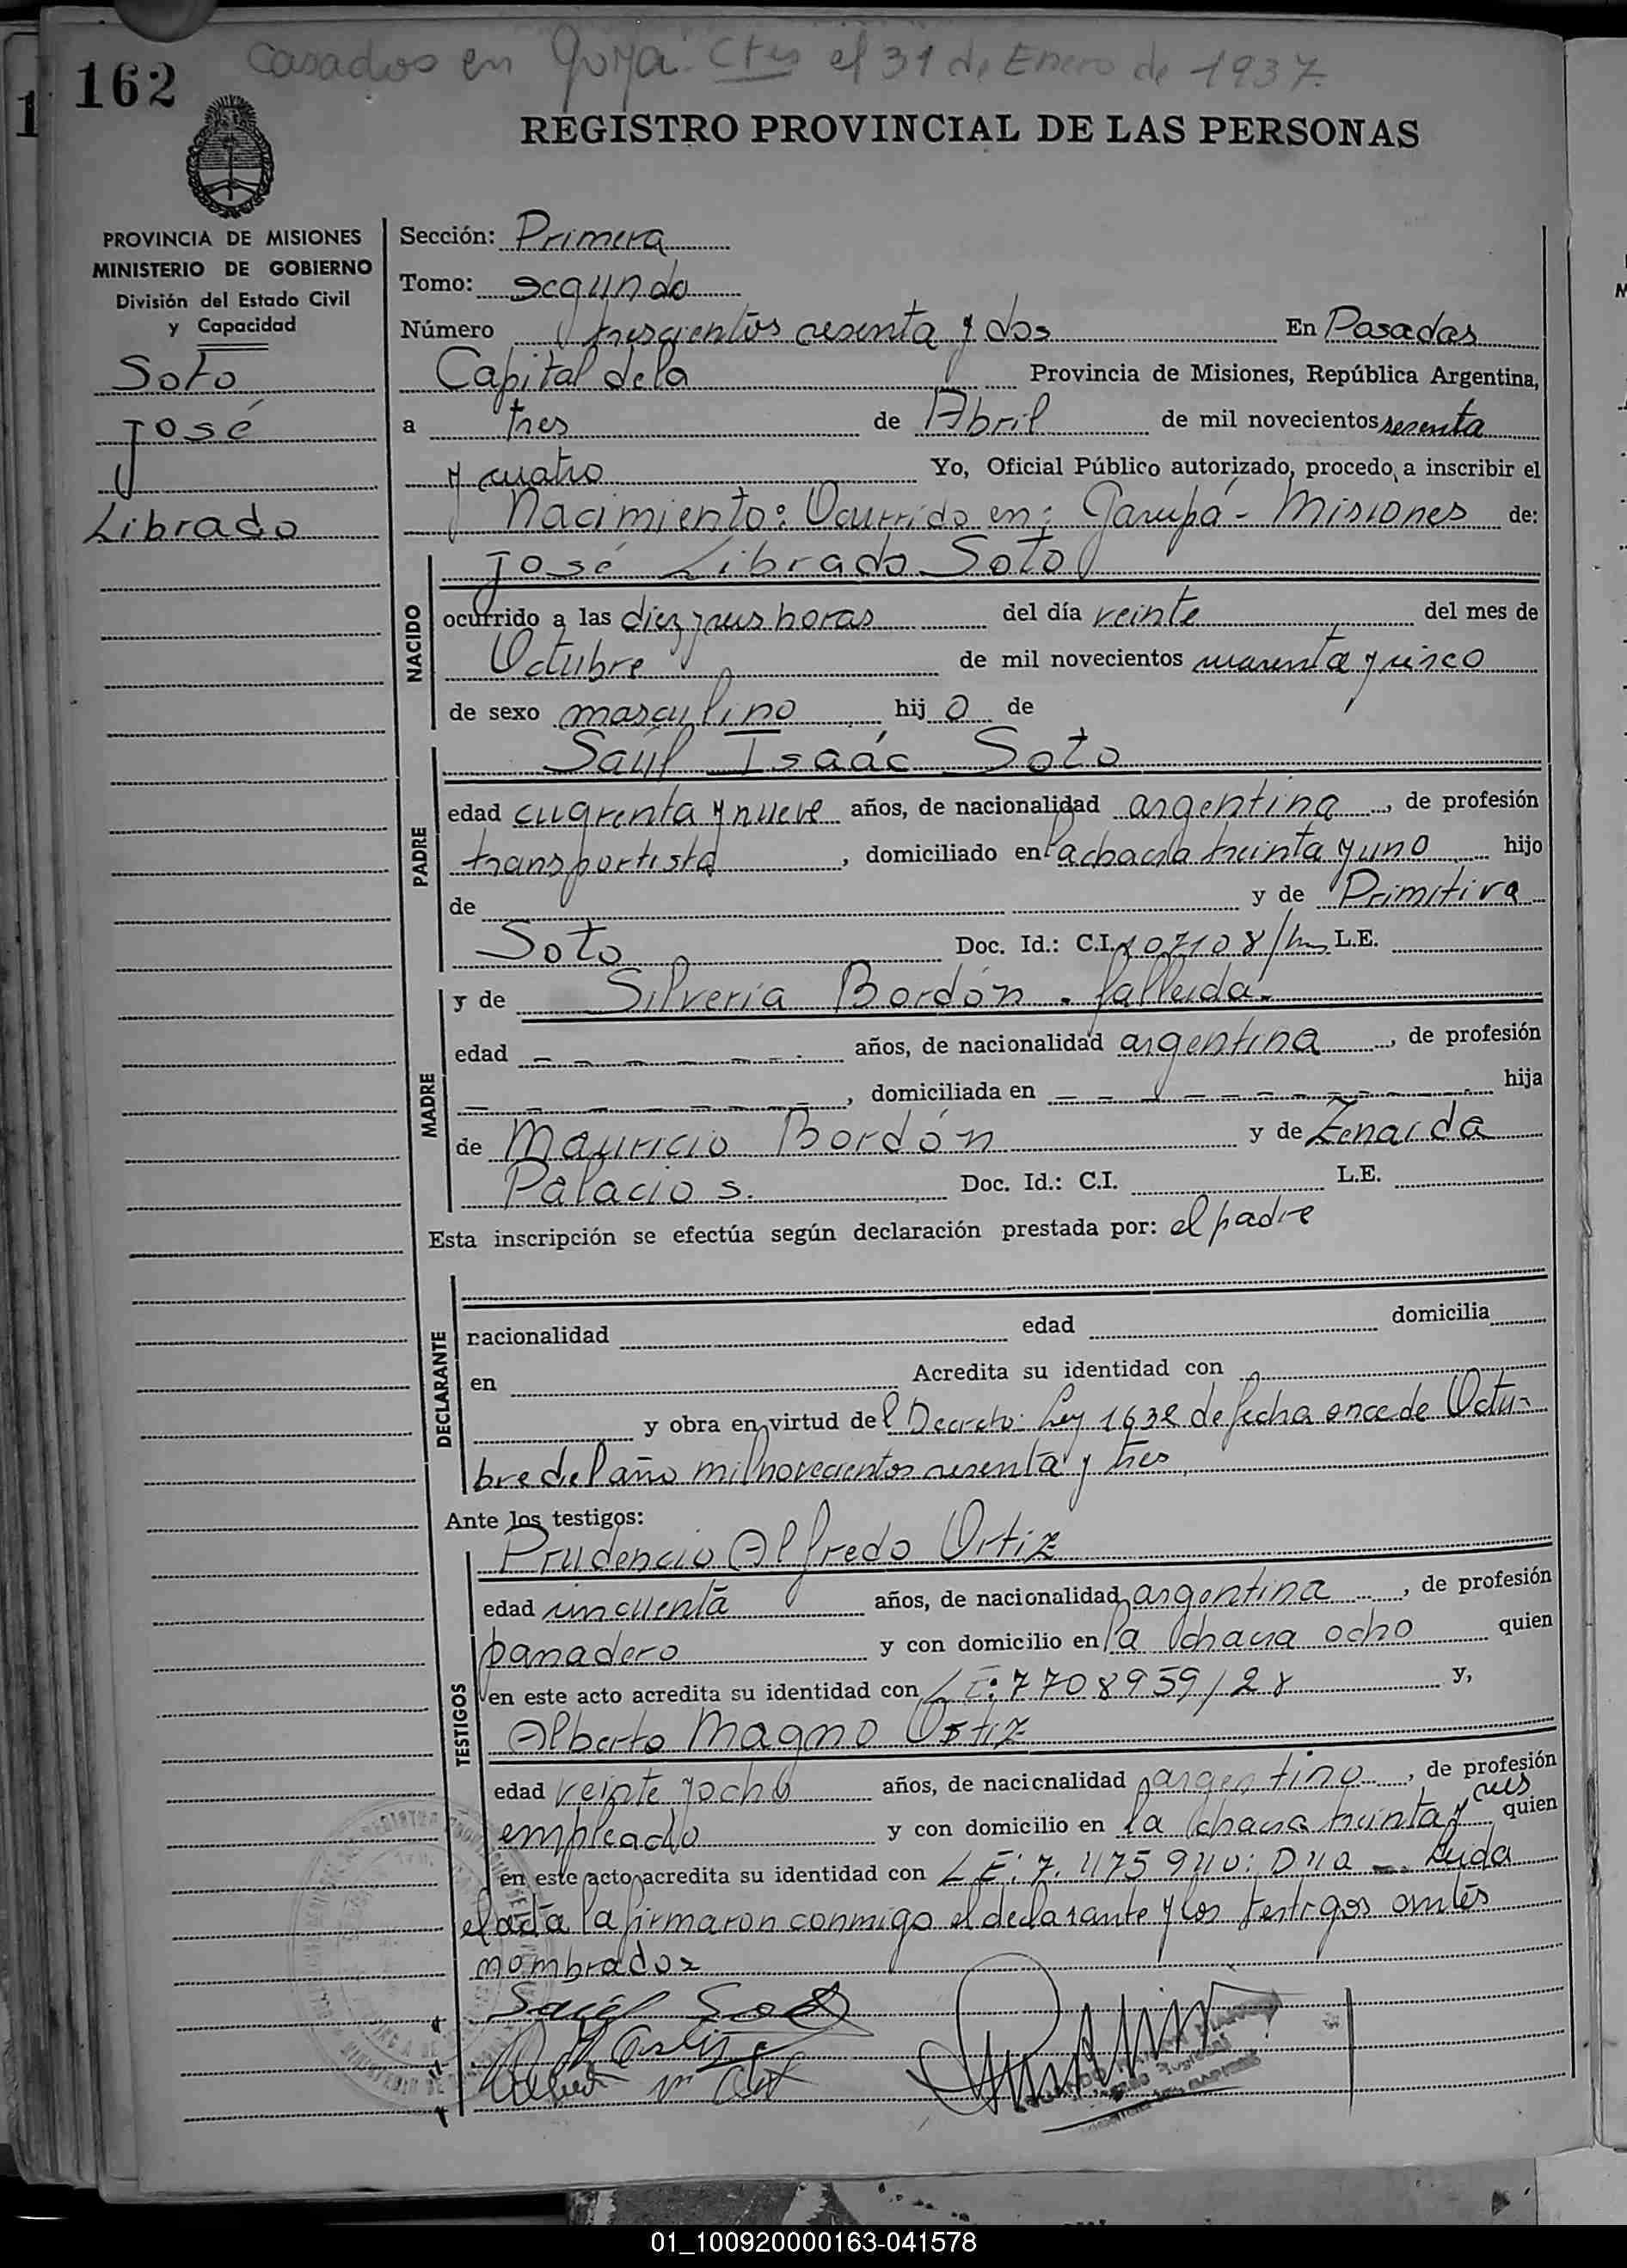 Casados en Goya. Ctes el 31 de Enero de 1937.
162
REGISTRO PROVINCIAL DE LAS PERSONAS
PROVINCIA DE MISIONES
MINISTERIO DE GOBIERNO
División del Estado Civil
y Capacidad
Soto
José
Librado
Sección: Primera
Tomo: segundo
Número trescientos sesenta y dos En Posadas
Capital de la Provincia de Misiones, República Argentina,
a tres de Abril de mil novecientos sesenta
y cuatro Yo, Oficial Público autorizado, procedo a inscribir el
Nacimiento: Ocurrido en: Garupá - Misiones de:
NACIDO
José Librado Soto
ocurrido a las diez y seis horas del día veinte del mes de
Octubre de mil novecientos cuarenta y cinco
de sexo masculino hijo de
PADRE
Saúl Isaác Soto
edad cuarenta y nueve años, de nacionalidad argentina, de profesión
transportista, domiciliado en la chacra treinta y uno hijo
de y de Primitiva
Soto Doc. Id.: C.I. 107108/ L.E.
MADRE
y de Silveria Bordón. fallecida.
edad años, de nacionalidad argentina, de profesión
, domiciliada en hija
de Mauricio Bordón y de Zenaida
Palacios. Doc. Id.: C.I. L.E.
Esta inscripción se efectúa según declaración prestada por: el padre
DECLARANTE
nacionalidad edad domicilia
en Acredita su identidad con
y obra en virtud del Decreto: Ley 1632 de fecha once de Octu-
bre del año mil novecientos sesenta y tres
Ante los testigos:
TESTIGOS
Prudencio Alfredo Ortiz
edad cincuenta años, de nacionalidad argentina, de profesión
panadero y con domicilio en la chacra ocho quien
en este acto acredita su identidad con L E: 7708959/28 y,
Alberto Magno Ortiz
edad veinte y ocho años, de nacionalidad argentino, de profesión
empleado y con domicilio en la chacra treinta y seis quien
en este acto acredita su identidad con L E: 7.475940: D40 -. Leida
el acta la firmaron conmigo el declarante y los testigos antes
nombrados
Saúl Soto
01_100920000163-041578